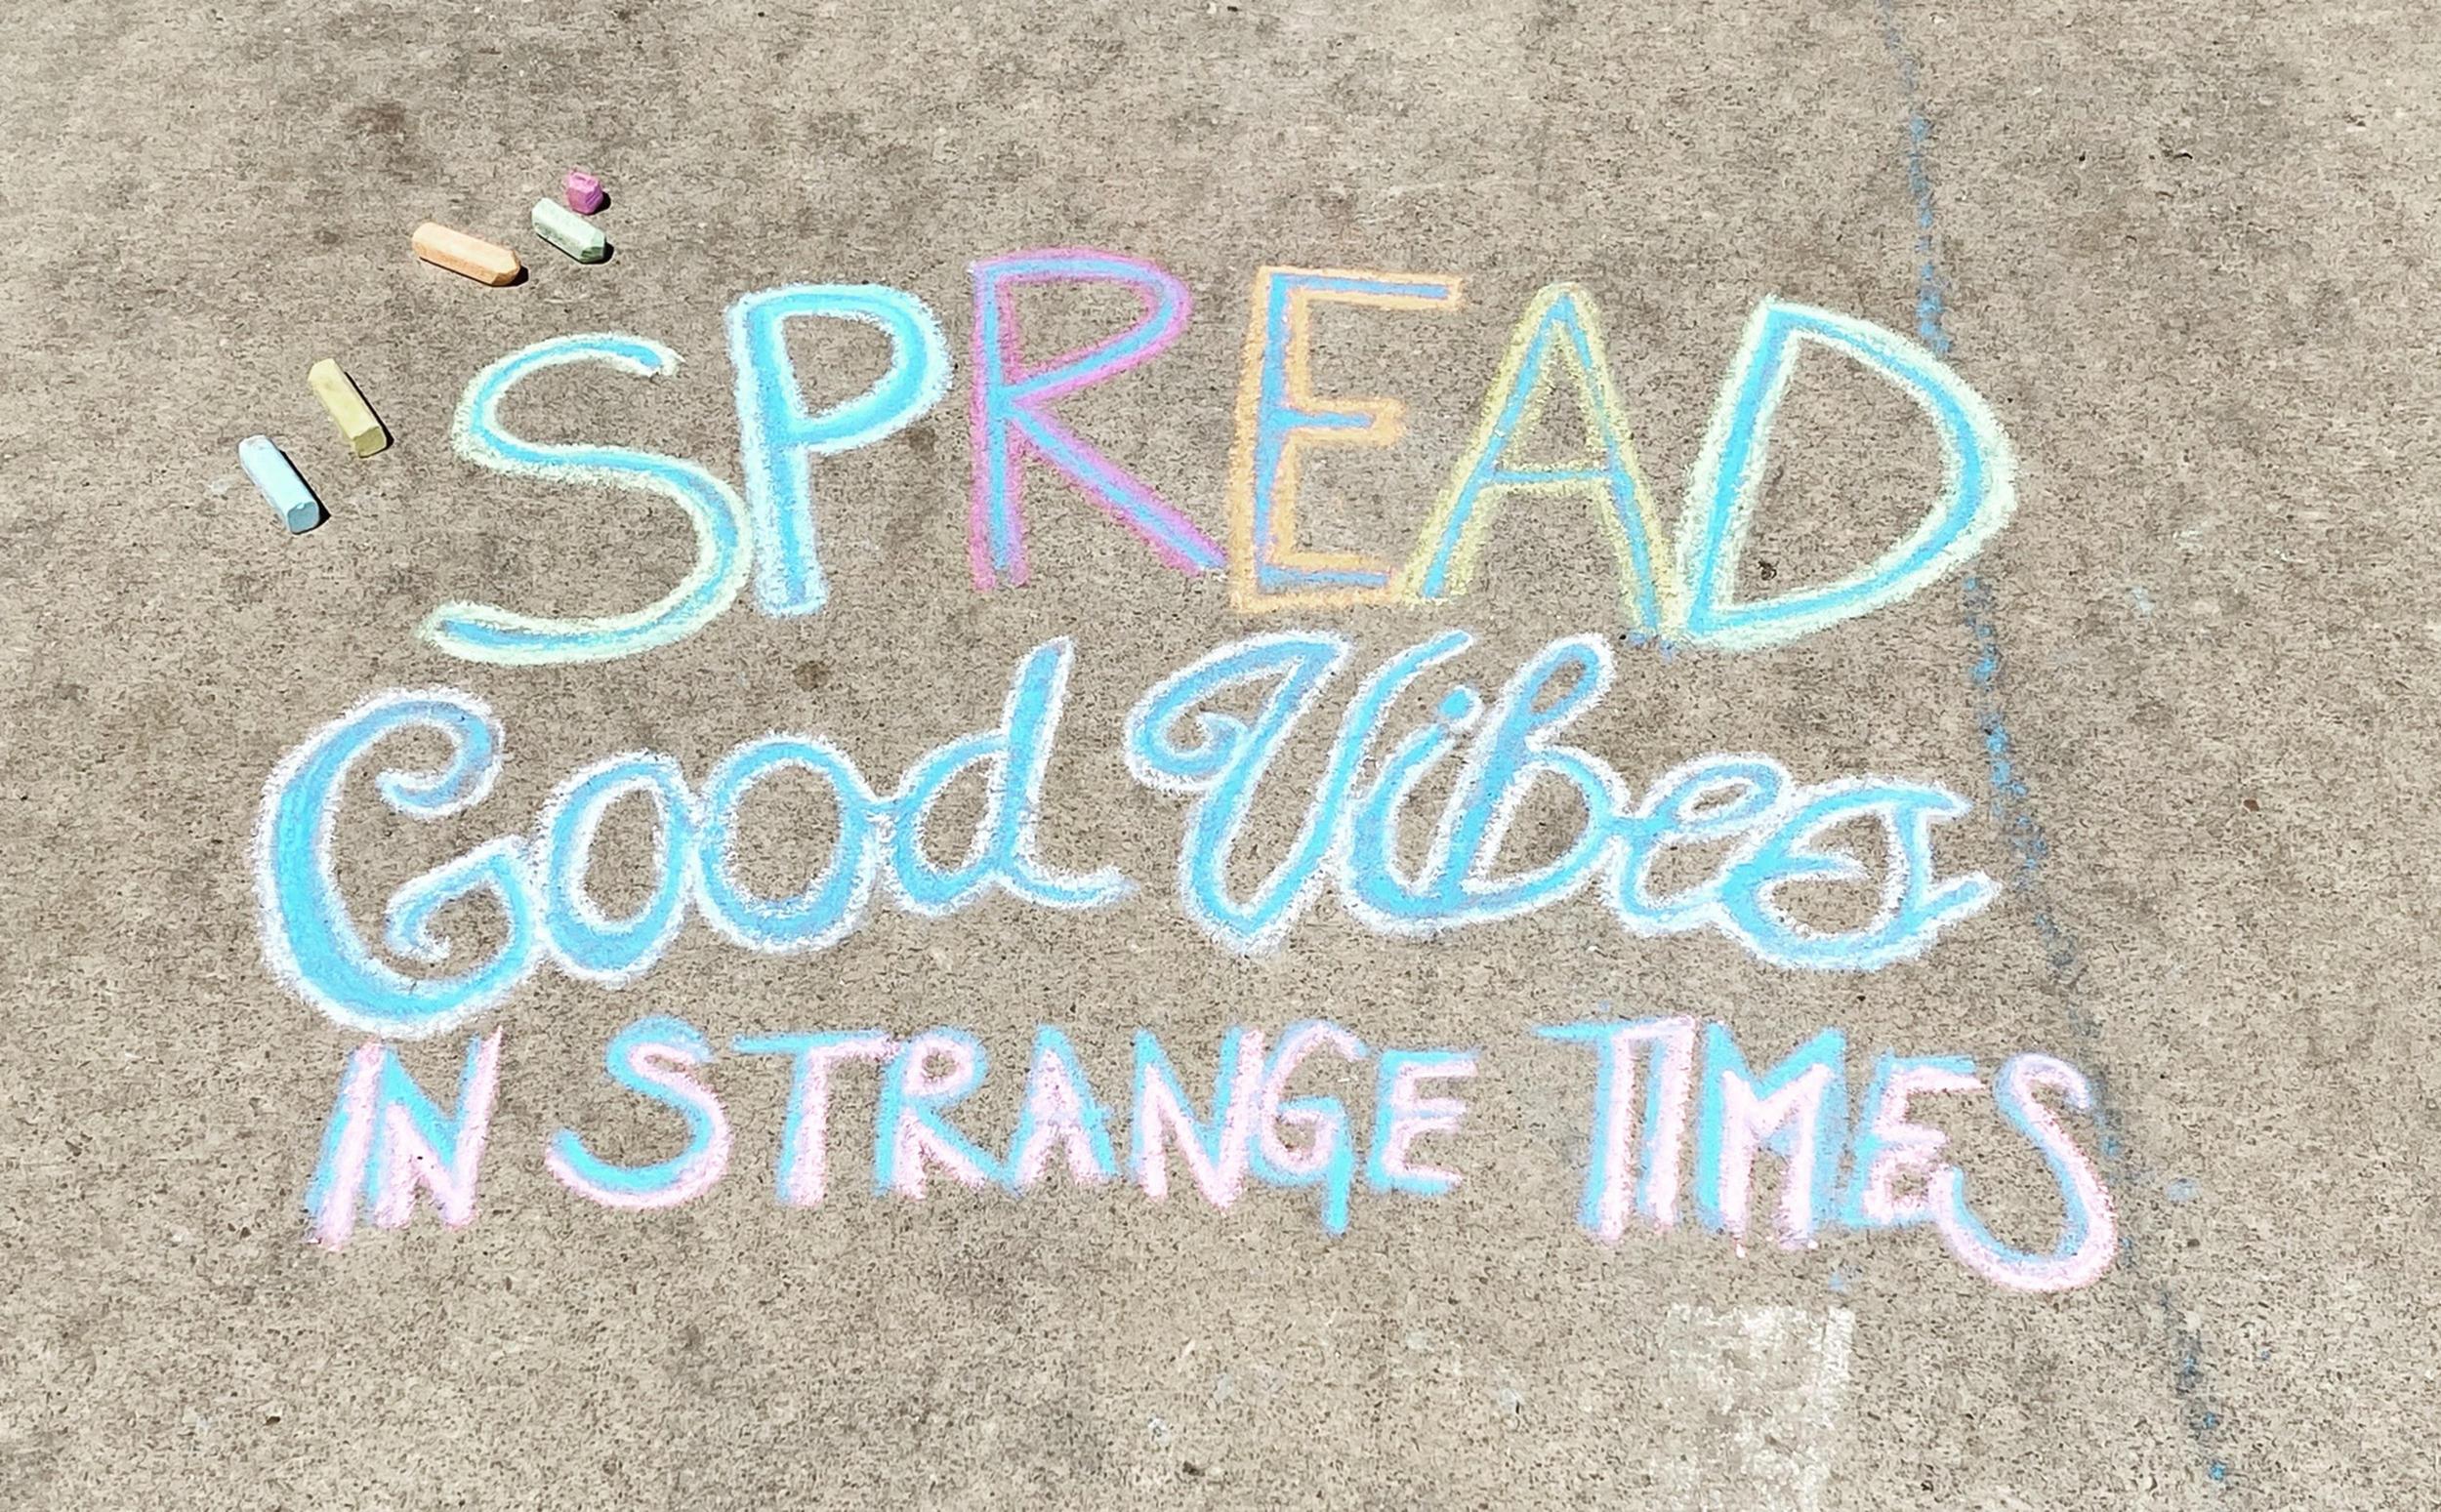 SPREAD
Good Vibes
IN STRANGE TIMES